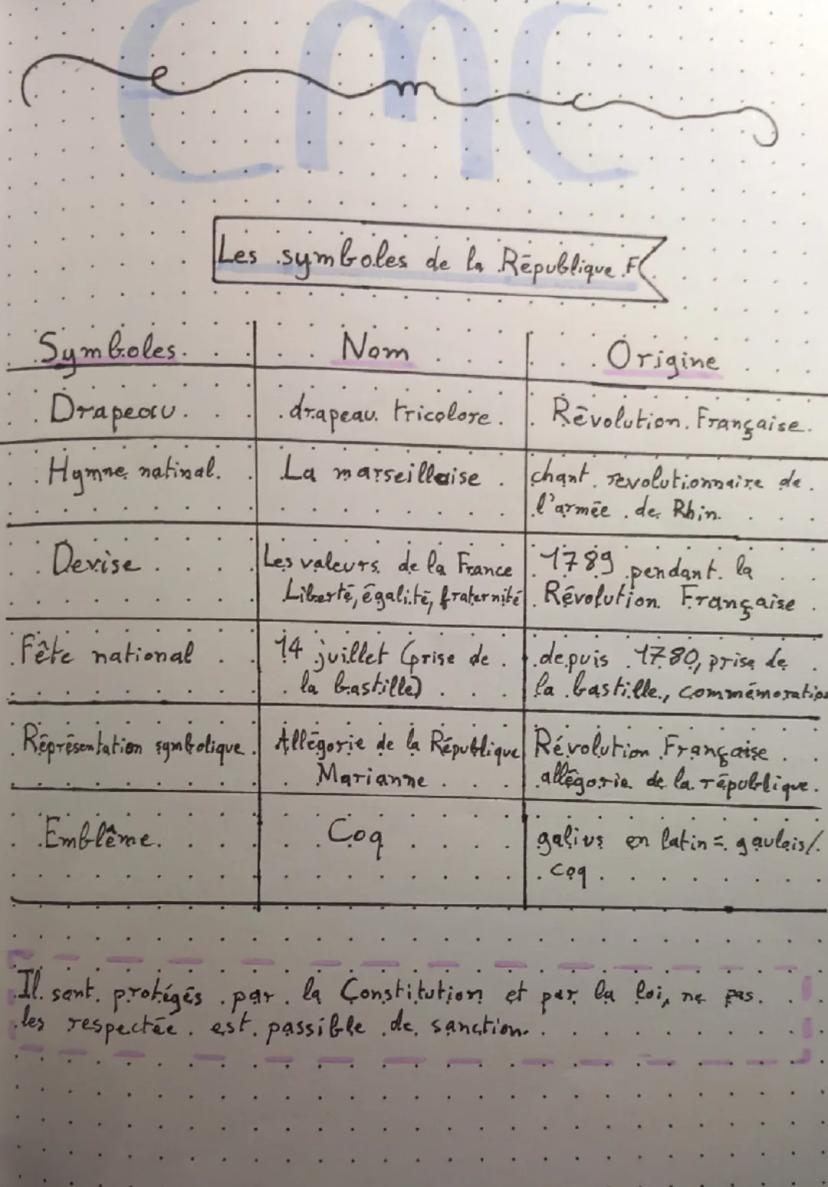 EMC
e m c
Les symboles de la République F
Symboles. Nom Origine
Drapeau drapeau tricolore. Révolution Française.
Hymne natinal. La marseillaise chant revolutionnaire de
l'armée de Rhin.
Devise Les valeurs de la France 1789 pendant la
Liberté, égalité, fraternité Révolution Française
Fête national 14 juillet (prise de depuis 1780, prise de
la bastille) la bastille, commémoration
Réprésentation symbolique. Allégorie de la République Révolution Française
Marianne allégorie de la république.
Emblême. Coq galius en latin = gaulois/
coq
Il sont protégés par la Constitution et par la loi, ne pas
les respectée est passible de sanction.